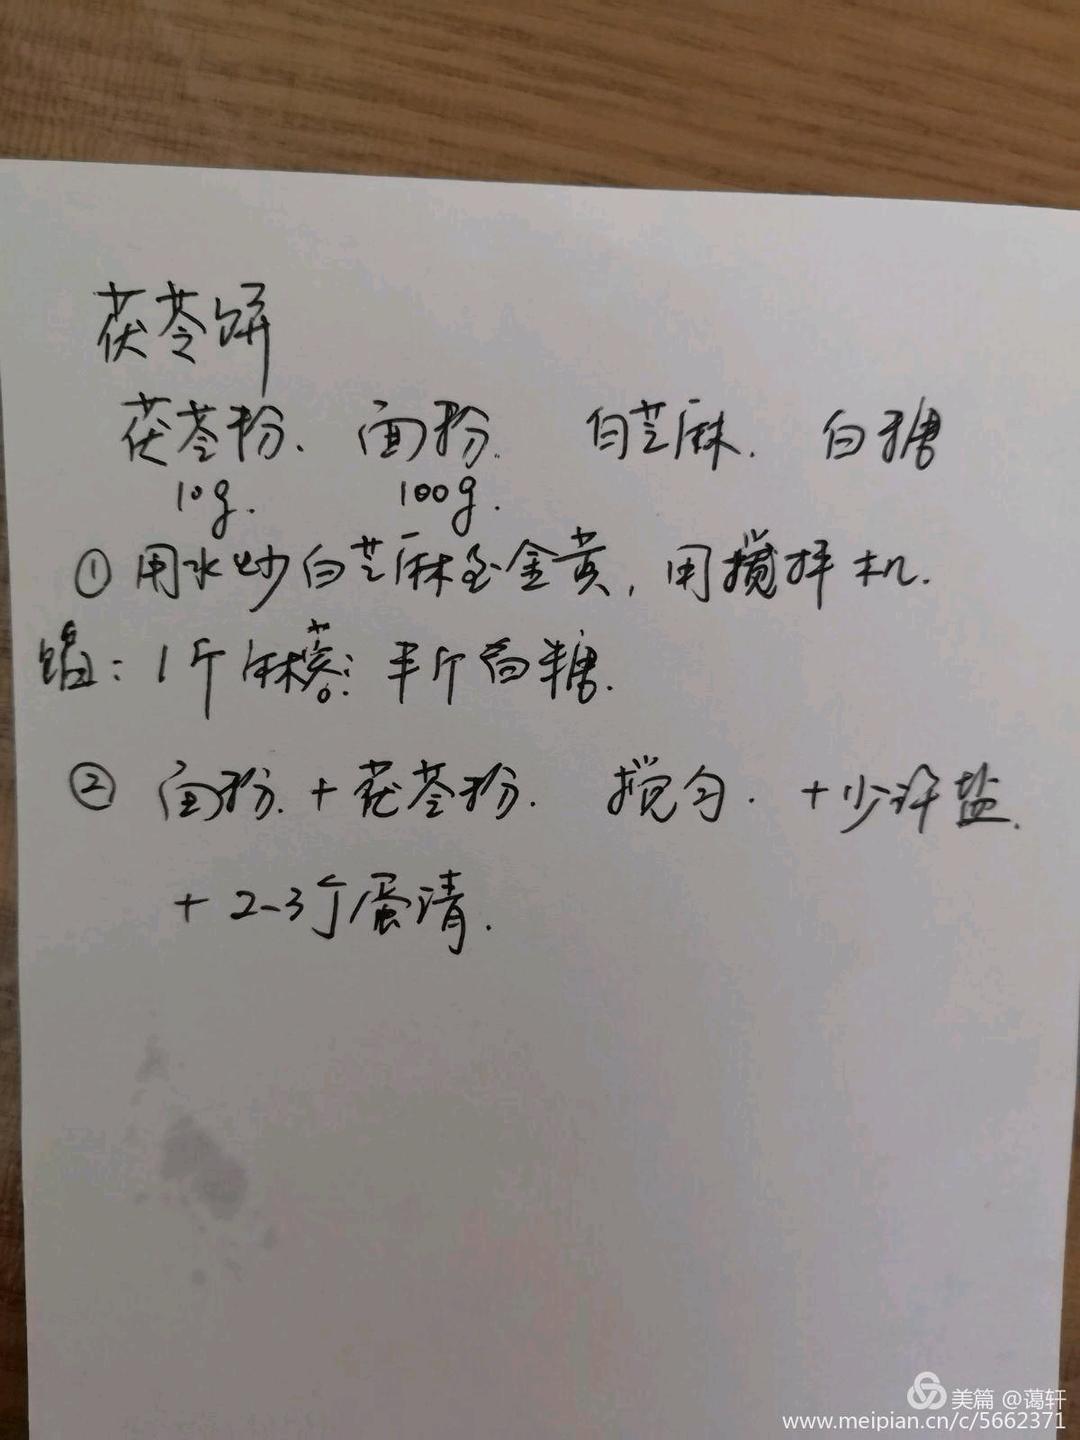 茯苓饼
茯苓粉、 面粉. 白芝麻. 白糖
10g. 100g.
①用水炒白芝麻至金黄，用搅拌机.
馅：1斤麻蓉：半斤白糖.
② 面粉.+茯苓粉. 搅匀. +少许盐.
+2-3个蛋清.
美篇 @蔼轩
www.meipian.cn/c/5662371